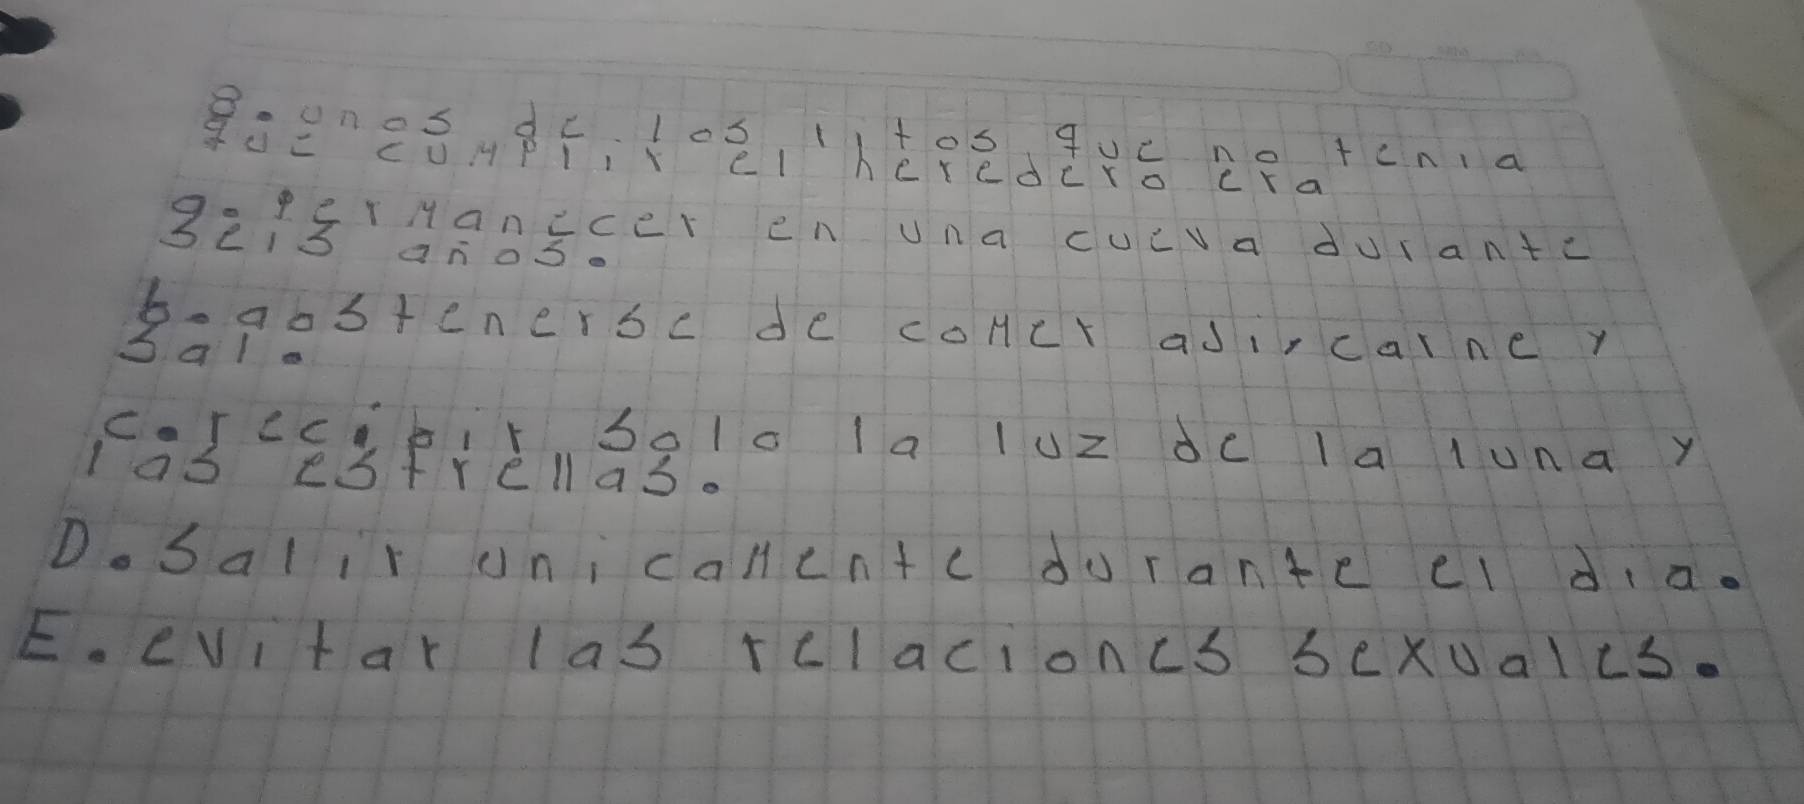 8. unos de los ritos que no tenia
que cumplir el heredero era
a. permanecer en una cueva durante
seis años.
b. abstenerse de comer ají, carne y
sal.
c. recibir solo la luz de la luna y
las estrellas.
D. salir unicamente durante el dia.
E. evitar las relaciones sexuales.